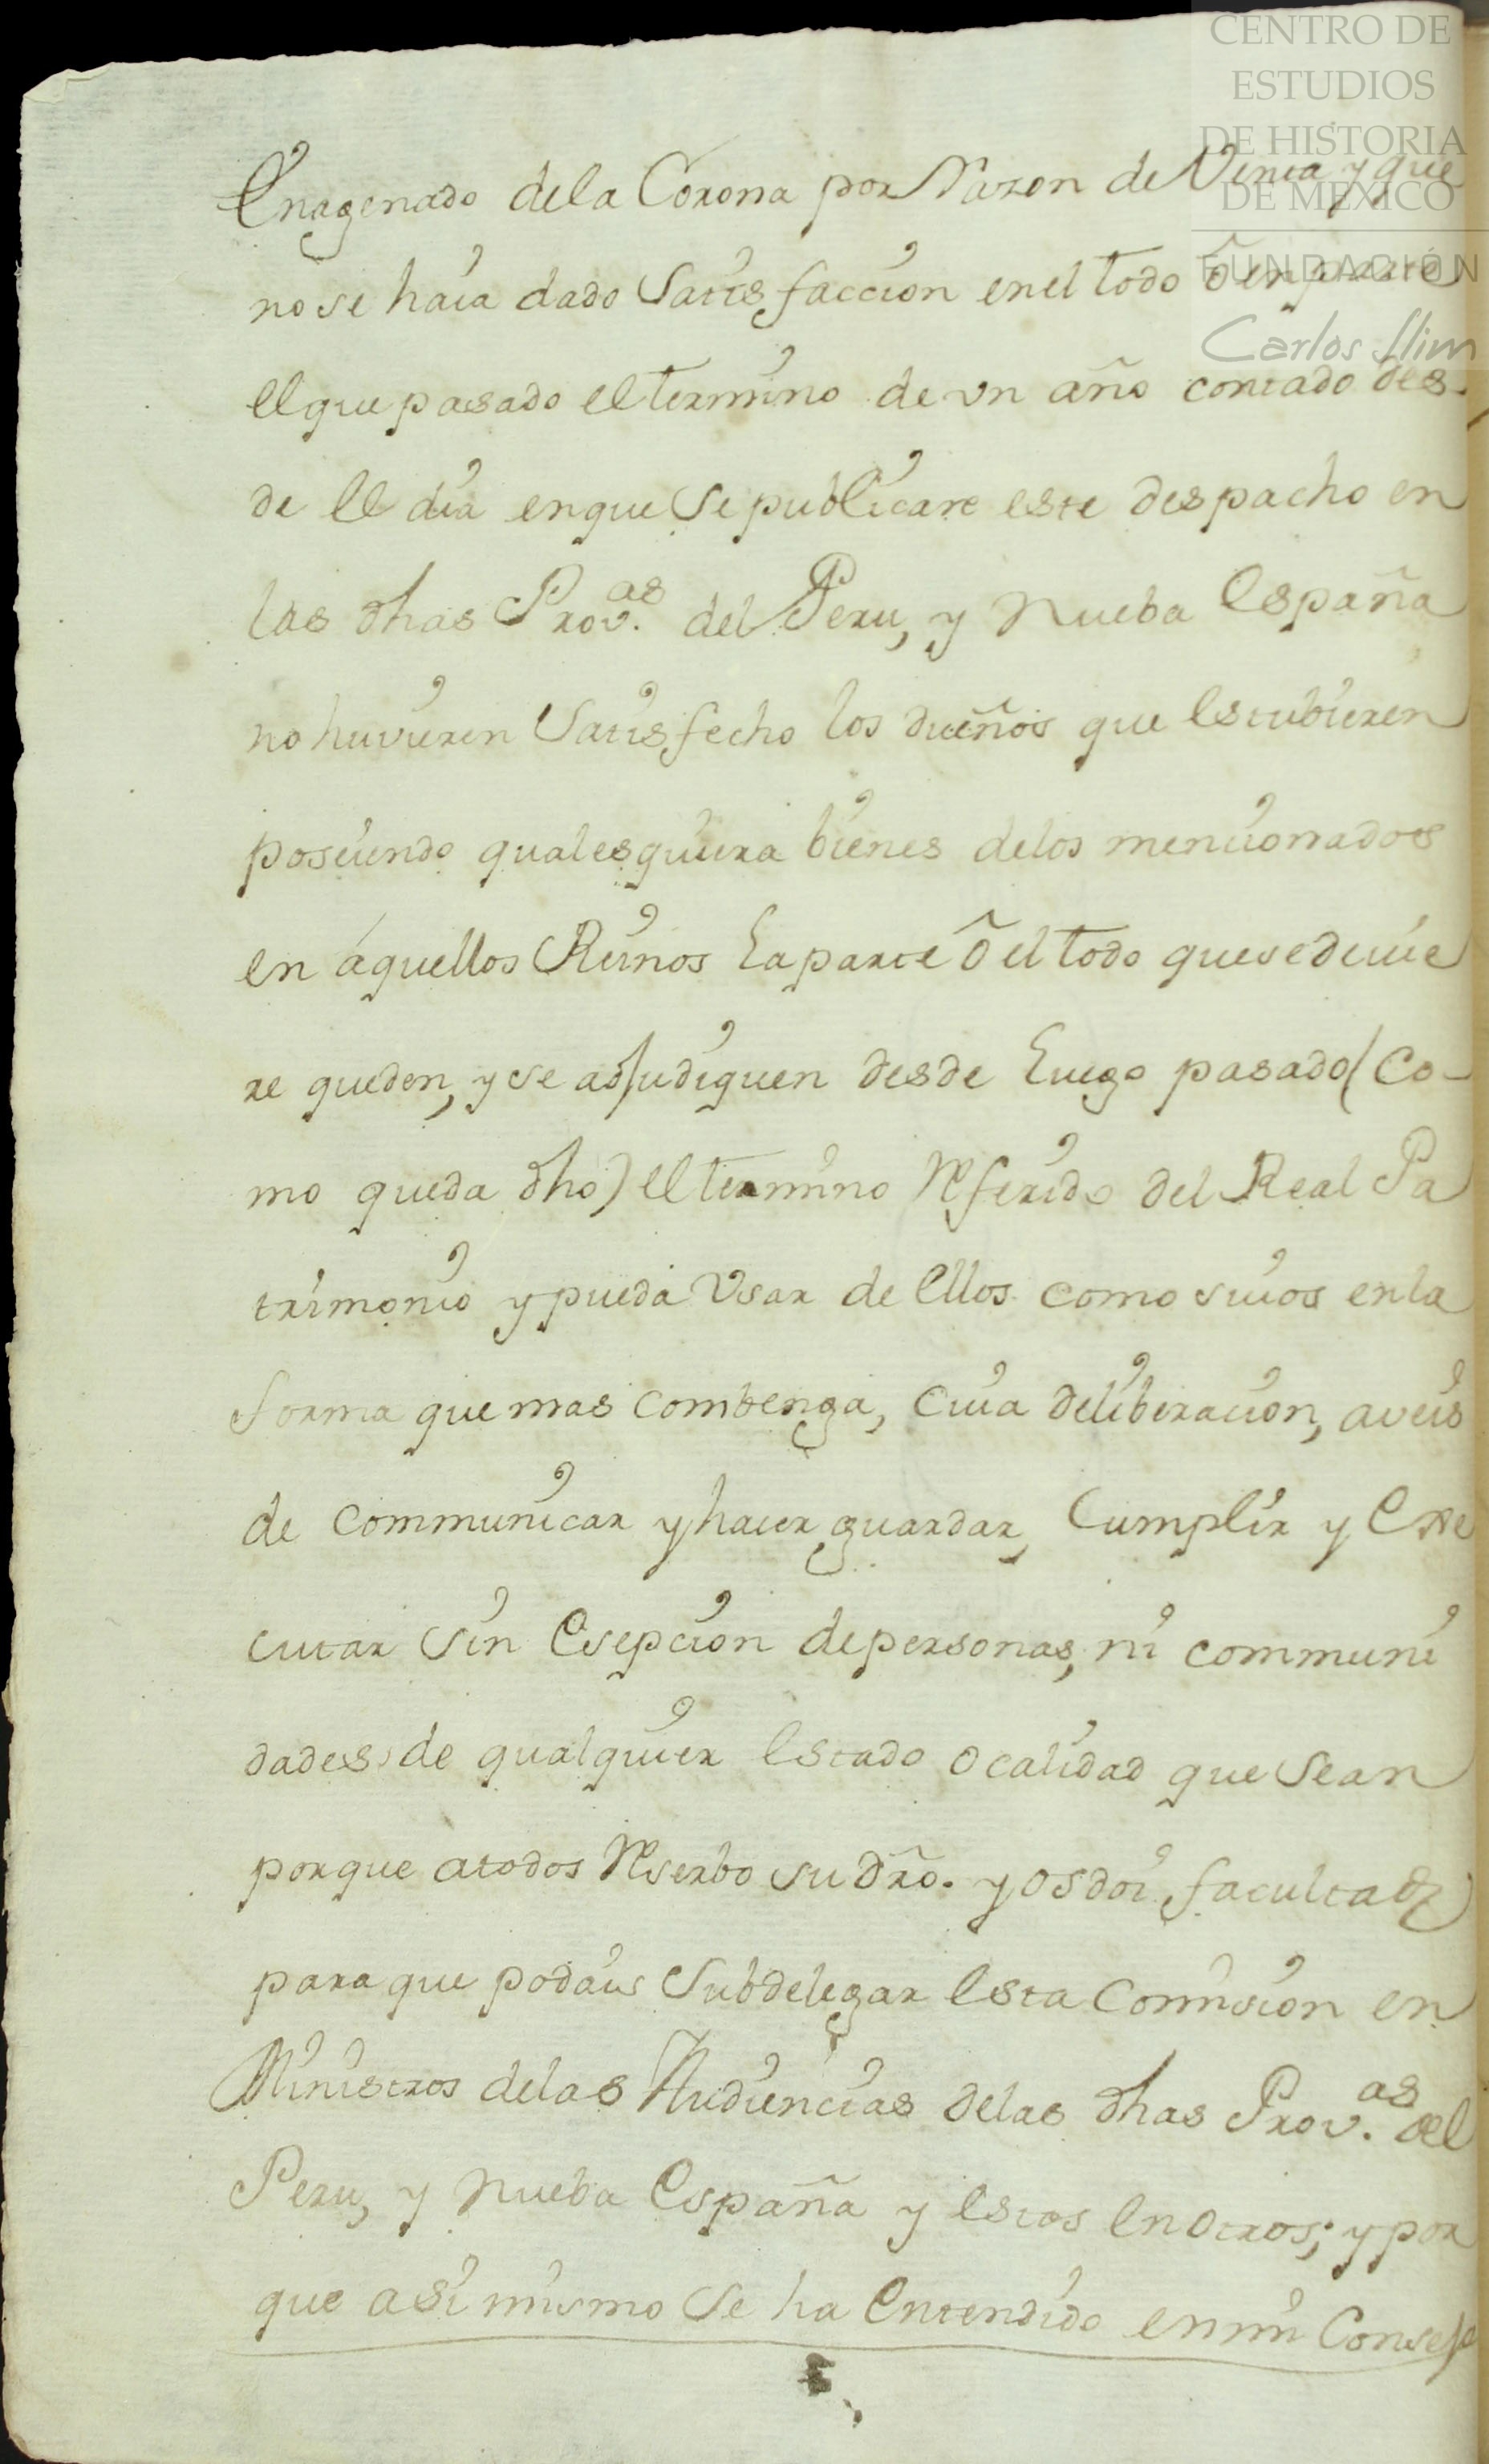 CENTRO DE
ESTUDIOS
DE HISTORIA
DE MÉXICO
FUNDACIÓN
Carlos Slim
Enagenado dela Corona por Razon de Venta y que
no se haia dado Satisfaccion en el todo õ en parte
el que pasado el termino de vn año contado des-
de el dia en que se publicare este despacho en
las dhas Prov.as del Peru, y Nueba España
no huvieren Satisfecho los dueños que estubieren
poseiendo qualesquiera bienes delos mencionados
en aquellos Reinos la parte õ el todo que se devie
re queden, y se adjudiquen desde luego pasado (co-
mo queda dho) el termino Referido del Real Pa
trimonio y pueda Vsar de ellos como suios en la
forma que mas combenga, cuia deliberacion, aveis
de communicar y hacer guardar, Cumplir y Exe
cutar sin Esepcion de personas, ni communi
dades de qualquier estado o calidad que sean
porque a todos Reserbo su dr̃o. y os doi facultad
para que podais subdelegar esta Comision en
Ministros delas Audiencias delas dhas Prov.as del
Peru, y Nueba España y estos en otros; y por
que asi mismo se ha Entendido en mi Consejo